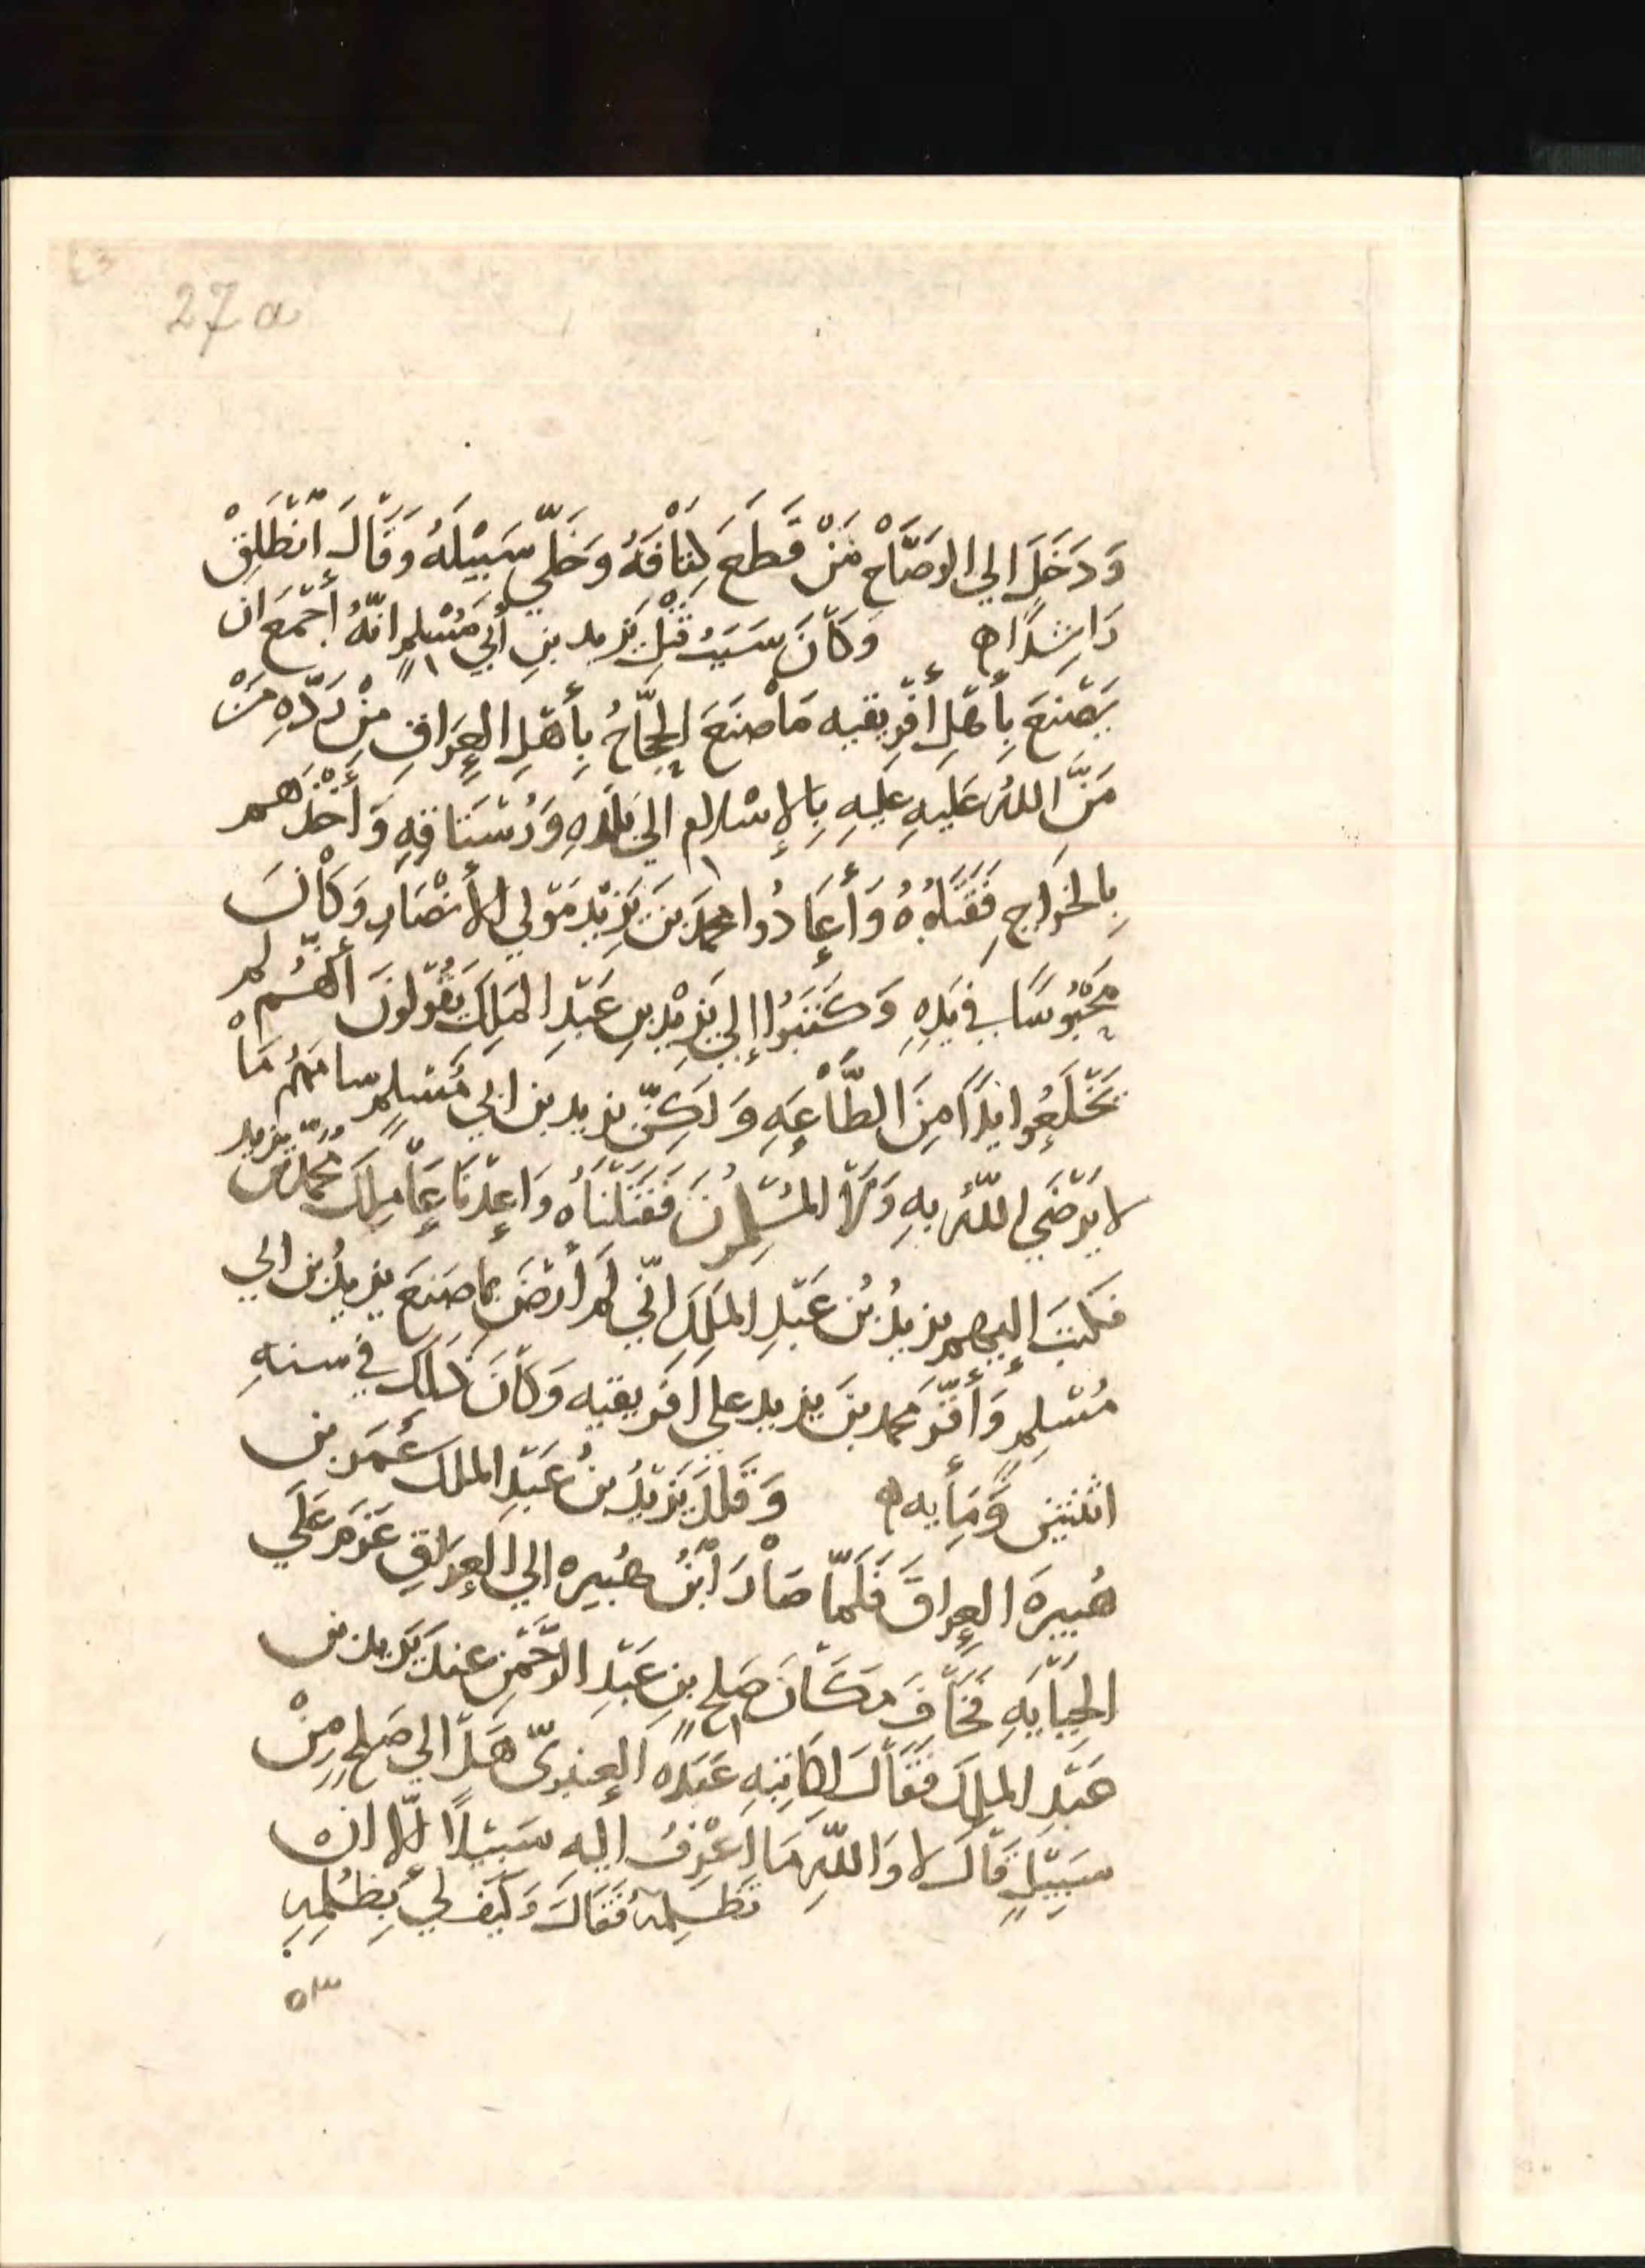 27a
وَدَخَلَ الي الوَضّاحْ مَنْ قَطَعَ كِتَافَهُ وَخَلّي سَبِيْلَهُ وَقَالَ اْنْطَلِقْ
رَاشِدًا ه وَكَانَ سَبَبُ قَتْلِ يَزيد بنِ أبي مُسْلِمٍ انّهُ أجْمَعَ ان
يَصْنَعَ بِأهْلِ أفْرِيقيه مَا صَنَعَ الحجّاجُ بِأهْلِ العِرَاقِ مِنْ رَدّهِ مَنْ
مَنَّ اللهُ عَلَيهِ عليهِ بِالإسْلام الي بَلَدِهِ وَرُسْتَاقِهِ وَأخْذهم
بِالخَرَاجِ فَقَتَلُوهُ وَأعَادُوا محمدَ بَنَ يَزِيْدَ مَوْلي الأنْصَارِ وَكَانَ
مَحْبُوسًا في يَدِهِ وَكَتَبَوُا إلي يَزِيْدَ بِنِ عَبْدِ المَلِكِ يَقُوْلونَ أنّهُم لم
يَخْلَعُوا يَدًا مِنَ الطَّاْعَهِ وَلَكِنّ يزيد بن ابي مُسْلِمٍ سامَهُم مَاْ
لا يَرْضَي اللّهُ بِهِ وَلَا المُسْلِمُونَ فَقَتَلْنَاُه وَاعَدْنَا عَامِلَكَ مُحمّد بن يزيد
فكتبَ إليهم يزيدُ بْنُ عَبْدِ المَلِكِ انّي لم أرْضَ بما صَنَعَ يزيدُ بن ابي
مُسْلِمٍ وَأقَرّ محمد بنَ يزيد علي افريقيه وَكَانَ ذَلِكَ في سنهِ
اثنتين وَمَأيه ه وَقَلّدَ يَزيْدُ بنُ عَبْدِ الملك عُمَرَ بن
هُبيرهَ العِراقَ فَلَمّا صَاْرَ اْبْنُ هُبيره الي العِرَاقِ عَزَم عَلَي
الجِبَايَهِ فَخَافَ مَكَانَ صَلحِ بنِ عَبْدِ الرّحْمَنِ عندَ يَزيد بن
عَبْدِ المَلِكِ فَقَالَ لكَاتِبِهِ عَبَدَه العنبريّ هَلْ الي صَلحٍ مِنْ
سَبِيْلٍ قَالَ لا وَاللّهِ مَا اعْرِفُ اليهِ سَبِيْلًا إلّا ان
تَظْلِمهُ فَقَالَ وَكَيْفَ لي بِظُلْمِهِ
٥٣